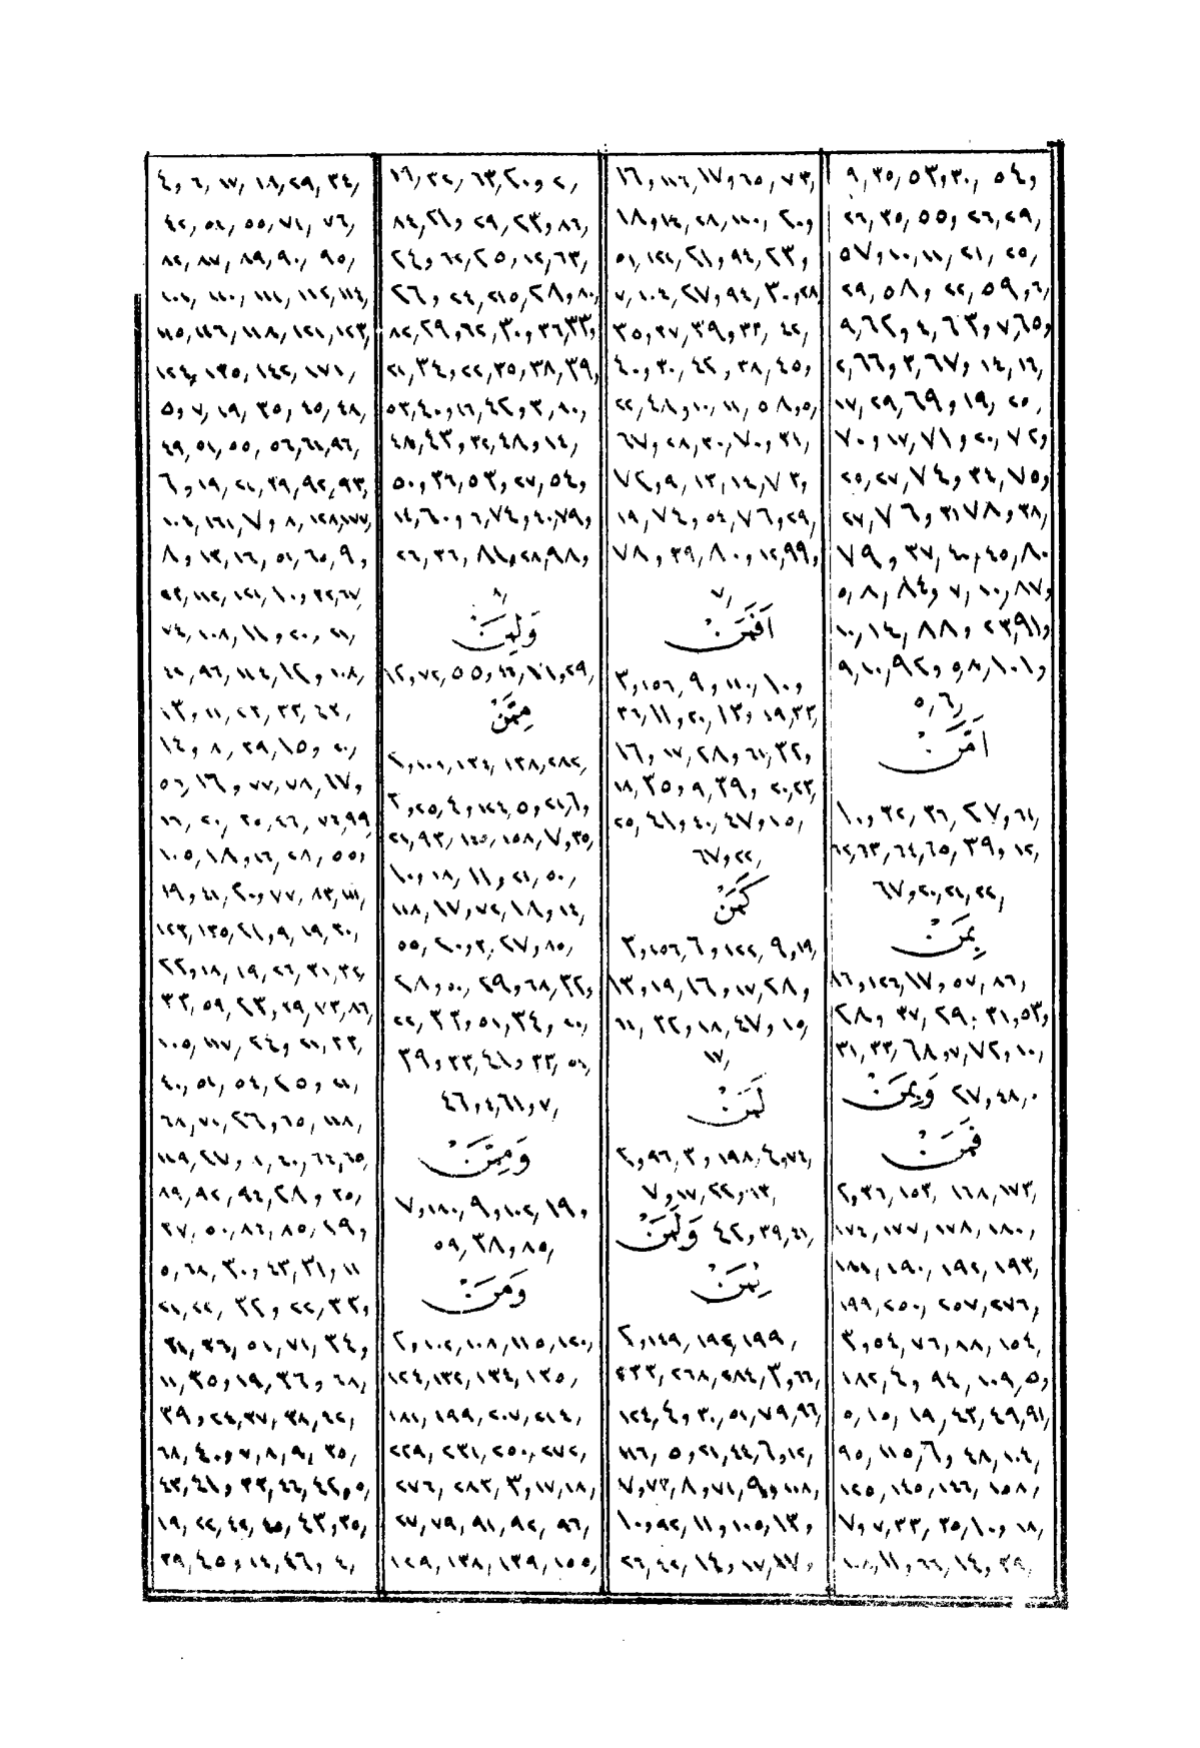 ٩, ٣٥, ٥٣, ٣٠, ٥٤,
٢٦, ٣٥, ٥٥, ٢٦, ٢٩,
٥٧, ١٠, ١١, ٢١, ٢٥,
٢٩, ٥٨, ٢٢, ٥٩, ٦,
٩, ٦٢, ٤, ٦٣, ٧, ٦٥,
٢, ٦٦, ٣, ٦٧, ١٤, ١٦,
١٧, ٢٩, ٦٩, ١٩, ٢٥,
٧٠, ١٧, ٧١, ٢٠, ٧٢,
٢٥, ٢٧, ٧٤, ٣٤, ٧٥,
٢٧, ٧٦, ٣١, ٧٨, ٣٨,
٧٩, ٣٧, ٤٠, ٤٥, ٨٠
٥, ٨, ٨٤, ٧, ١٠, ٨٧,
١٠, ١٤, ٨٨, ٢٣, ٩١,
٩, ١٠, ٩٢, ٥, ٨, ١٠١,
٥, ٦,
اَمَّنْ
١٠, ٣٢, ٣٦, ٢٧, ٦١,
٦٢, ٦٣, ٦٤, ٦٥, ٣٩, ١٢,
٦٧, ٢٠, ٢١, ٢٢,
بِمَنْ
١٦, ١٢٦, ١٧, ٥٧, ٨٦,
٢٨, ٣٧, ٢٩, ٣١, ٥٣,
٣١, ٣٣, ٦٨, ٧, ٧٢, ١٠,
وَبِمَنْ ٢٧, ٤٨,
فَمَنْ
٢, ٣٦, ١٥٣, ١٦٨, ١٧٣,
١٧٤, ١٧٧, ١٧٨, ١٨٠,
١٨١, ١٩٠, ١٩٢, ١٩٣,
١٩٩, ٢٥٠, ٢٥٧, ٢٧٦,
٣, ٥٤, ٧٦, ٨٨, ١٥٤,
١٨٢, ٤, ٩٤, ١٠٩, ٥,
٥, ١٥, ١٩, ٤٣, ٤٩, ٩١,
٩٥, ١١٥, ٦, ٤٨, ١٠٤,
١٢٥, ١٤٥, ١٤٦, ١٥٨,
٧, ٧, ٣٣, ٣٥, ١٠, ١٨,
١٠٨, ١١, ٦٦, ١٤, ٣٩,
١٦, ١١٦, ١٧, ٦٥, ٧٣,
١٨, ١٤, ٢٨, ١١٠, ٢٠,
٥١, ١٢٢, ٢١, ٩٤, ٢٣,
٧, ١٠٤, ٢٧, ٩٤, ٣٠, ٢٨
٣٥, ٣٧, ٣٩, ٣٢, ٤٤,
٤٠, ٣٠, ٤٢, ٣٨, ٤٥,
٢٢, ٤٨, ١٠, ١١, ٥٨, ٥,
٦٧, ٢٨, ٣٠, ٧٠, ٣١,
٧٢, ٩, ١٣, ١٤, ٧٣,
١٩, ٧٤, ٥٤, ٧٦, ٢٩,
٧٨, ٣٩, ٨٠, ١٢, ٩٩,
٧,
اَفَمَنْ
٣, ١٥٦, ٩, ١١٠, ١٠,
٣٦, ١١, ٢٠, ١٣, ١٩, ٣٣,
١٦, ١٧, ٢٨, ٦١, ٣٢,
١٨, ٣٥, ٩, ٣٩, ٢٠, ٢٣,
٢٥, ٤١, ٤٠, ٤٧, ١٥,
٦٧, ٢٢,
كَمَنْ
٣, ١٥٦, ٦, ١٢٢, ٩, ١٩,
١٣, ١٩, ١٦, ١٧, ٢٨,
٦١, ٣٢, ١٨, ٤٧, ١٥,
١٧,
لَمَنْ
٢, ٩٦, ٣, ١٩٨, ٤, ٧٤,
٧, ١٧, ٢٢, ١٣,
وَلَمَنْ ٤٢, ٣٩, ٤١,
لِمَنْ
٢, ١٤٩, ١٩٦, ١٩٩,
٢٣٣, ٢٦٨, ٢٨٤, ٣, ٦٦,
١٢٤, ٤, ٣٠, ٥١, ٧٩, ٩٦,
١١٦, ٥, ٢١, ٤٤, ٦, ١٢,
٧, ٧٣, ٨, ٧١, ٩, ١٠٨,
١٠, ٩٢, ١١, ١٠٥, ١٣,
٢٦, ٤٢, ١٤, ١٧, ١٧,
١٦, ٣٤, ٦٣, ٢٠, ٢,
٨٤, ٢١, ٢٩, ٢٣, ٨٦,
٢٤, ٦٢, ٢٥, ١٢, ٦٣,
٢٦, ٢٤, ٢١٥, ٢٨, ٨٠
٨٢, ٢٩, ٦٢, ٣٠, ٣٦, ٣٣,
٢١, ٣٤, ٢٢, ٣٥, ٣٨, ٣٩,
٥٣, ٤٠, ١٦, ٤٢, ٣, ٨٠,
٤٨, ٤٣, ٣٢, ٤٨, ١٤,
٥٠, ٣٦, ٥٣, ٢٧, ٥٤,
١٤, ٦٠, ٦, ٧٤, ٤٠, ٧٩,
٢٦, ٣٦, ٨١, ٢٨, ٩٨,
٨,
وَلِمَنْ
١٢, ٧٢, ٥٥, ٤٦, ٧١, ٢٩,
مِمَّنْ
٢, ١٠٩, ١٣٤, ١٣٨, ٢٨٢,
٣, ٢٥, ٤, ١٢٤, ٥, ٢١, ٦,
٢١, ٩٣, ١٤٥, ١٥٨, ٧, ٣٥,
١٠, ١٨, ١١, ٢١, ٥٠,
١١٨, ١٧, ٧٢, ١٨, ١٤,
٥٥, ٢٠, ٣, ٢٧, ٨٥,
٢٨, ٥٠, ٢٩, ٦٨, ٣٢,
٢٢, ٣٣, ٥١, ٣٤, ٢٠,
٣٩, ٢٣, ٤١, ٣٣, ٥١,
٤٦, ٤, ٦١, ٧,
وَمِمَّنْ
٧, ١٨٠, ٩, ١٠٢, ١٩,
٥٩, ٣٨, ٨٥,
وَمَنْ
٢, ١٠٢, ١٠٨, ١١٥, ١٢٠,
١٢٤, ١٢٦, ١٣٤, ١٣٥,
١٨١, ١٩٩, ٢٠٧, ٢١٤,
٢٢٩, ٢٣١, ٢٥٠, ٢٧٢,
٢٧٦, ٢٨٣, ٣, ١٧, ١٨,
٢٧, ٧٥, ٩١, ٩٤, ٩٦,
١٢٩, ١٣٨, ١٣٩, ١٥٥,
٤, ٦, ١٧, ١٨, ٢٩, ٣٤,
٤٢, ٥٤, ٥٥, ٧١, ٧٦,
٨٢, ٨٧, ٨٩, ٩٠, ٩٥,
١٠٤, ١١٠, ١١١, ١١٢, ١١٤,
١١٥, ١١٦, ١١٨, ١٢١, ١٢٣,
١٢٤, ١٣٥, ١٤٢, ١٧١,
٥, ٧, ١٩, ٣٥, ٤٥, ٤٨,
٤٩, ٥١, ٥٥, ٥٦, ٦١, ٩٦,
٦, ١٩, ٢١, ٣٩, ٩٢, ٩٣,
١٠٤, ١٦١, ٧, ٨, ١٢٨, ١٧٧,
٨, ١٣, ١٦, ٥١, ٦٥, ٩,
٢٣, ١١٤, ١٢١, ١٠, ٣٢, ٦٧,
٧٤, ١٠٨, ١١, ٢٠, ٢١,
٤٠, ٩٦, ١١٤, ١٢, ١٠٨,
١٣, ١١, ٢٢, ٣٣, ٤٣,
١٤, ٨, ٢٩, ١٥, ٢٠,
٥٦, ١٦, ٧٧, ٧٨, ١٧,
١٦, ٢٠, ٣٥, ٤٦, ٧٢, ٩٩
١٠٥, ١٨, ١٦, ٢٨, ٥٥,
١٩, ٤١, ٢٠, ٧٧, ٨٢, ١١١,
١٢٣, ١٣٥, ٢١, ٩, ١٩, ٣٠,
٢٢, ١٨, ١٩, ٢٦, ٣١, ٣٤,
٣٣, ٥٩, ٢٣, ٢٩, ٧٣, ٨٦,
١٠٥, ١١٧, ٢٤, ٢١, ٢٣,
٤٠, ٥١, ٥٤, ٢٥, ١١,
٦٨, ٧٠, ٢٦, ٦٥, ١١٨,
١١٩, ٢٧, ٨, ٤٠, ٦٤, ٦٥,
٨٩, ٩٢, ٩٤, ٢٨, ٣٥,
٣٧, ٥٠, ٨٤, ٨٥, ٢٩,
٥, ٦٨, ٣٠, ٤٣, ٣١, ١١
٢١, ٢٢, ٣٢, ٢٢, ٣٣,
٣١, ٣٦, ٥١, ٧١, ٣٤,
١١, ٣٥, ١٩, ٣٦, ٦٨,
٣٩, ٢٤, ٣٧, ٣٨, ٤٢,
٦٨, ٤٠, ٧, ٨, ٩, ٣٥,
٤٣, ٤١, ٣٣, ٤٤, ٤٢, ٥,
١٩, ٢٢, ٤٤, ٤٥, ٤٣, ٣٥,
٣٩, ٤٥, ١٤, ٤٦, ٤,